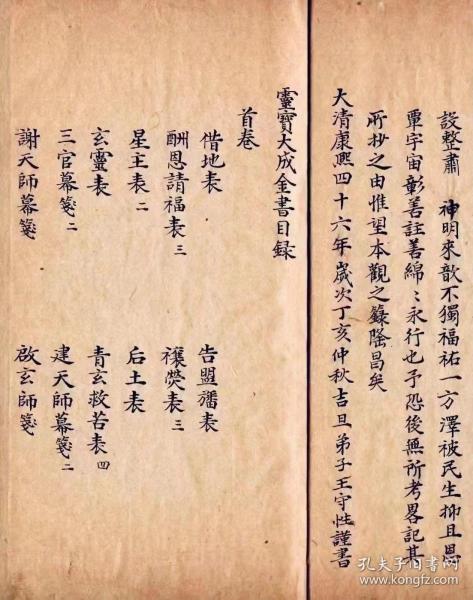 設整肅　神明來歆不獨福祐一方澤被民生抑且恩
覃宇宙彰善註善綿〻永行也予恐後無所考畧記其
所抄之由惟望本觀之籙隆昌矣
大清康熙四十六年歲次丁亥仲秋吉旦弟子王守性謹書
靈寶大成金書目録
首卷
借地表　告盟旛表
酬恩請福表三　禳熒表三
星主表二　后土表
玄靈表　青玄救苦表四
三官幕箋二　建天師幕箋二
謝天師幕箋　啟玄師箋
孔夫子旧书网
book.kongfz.com